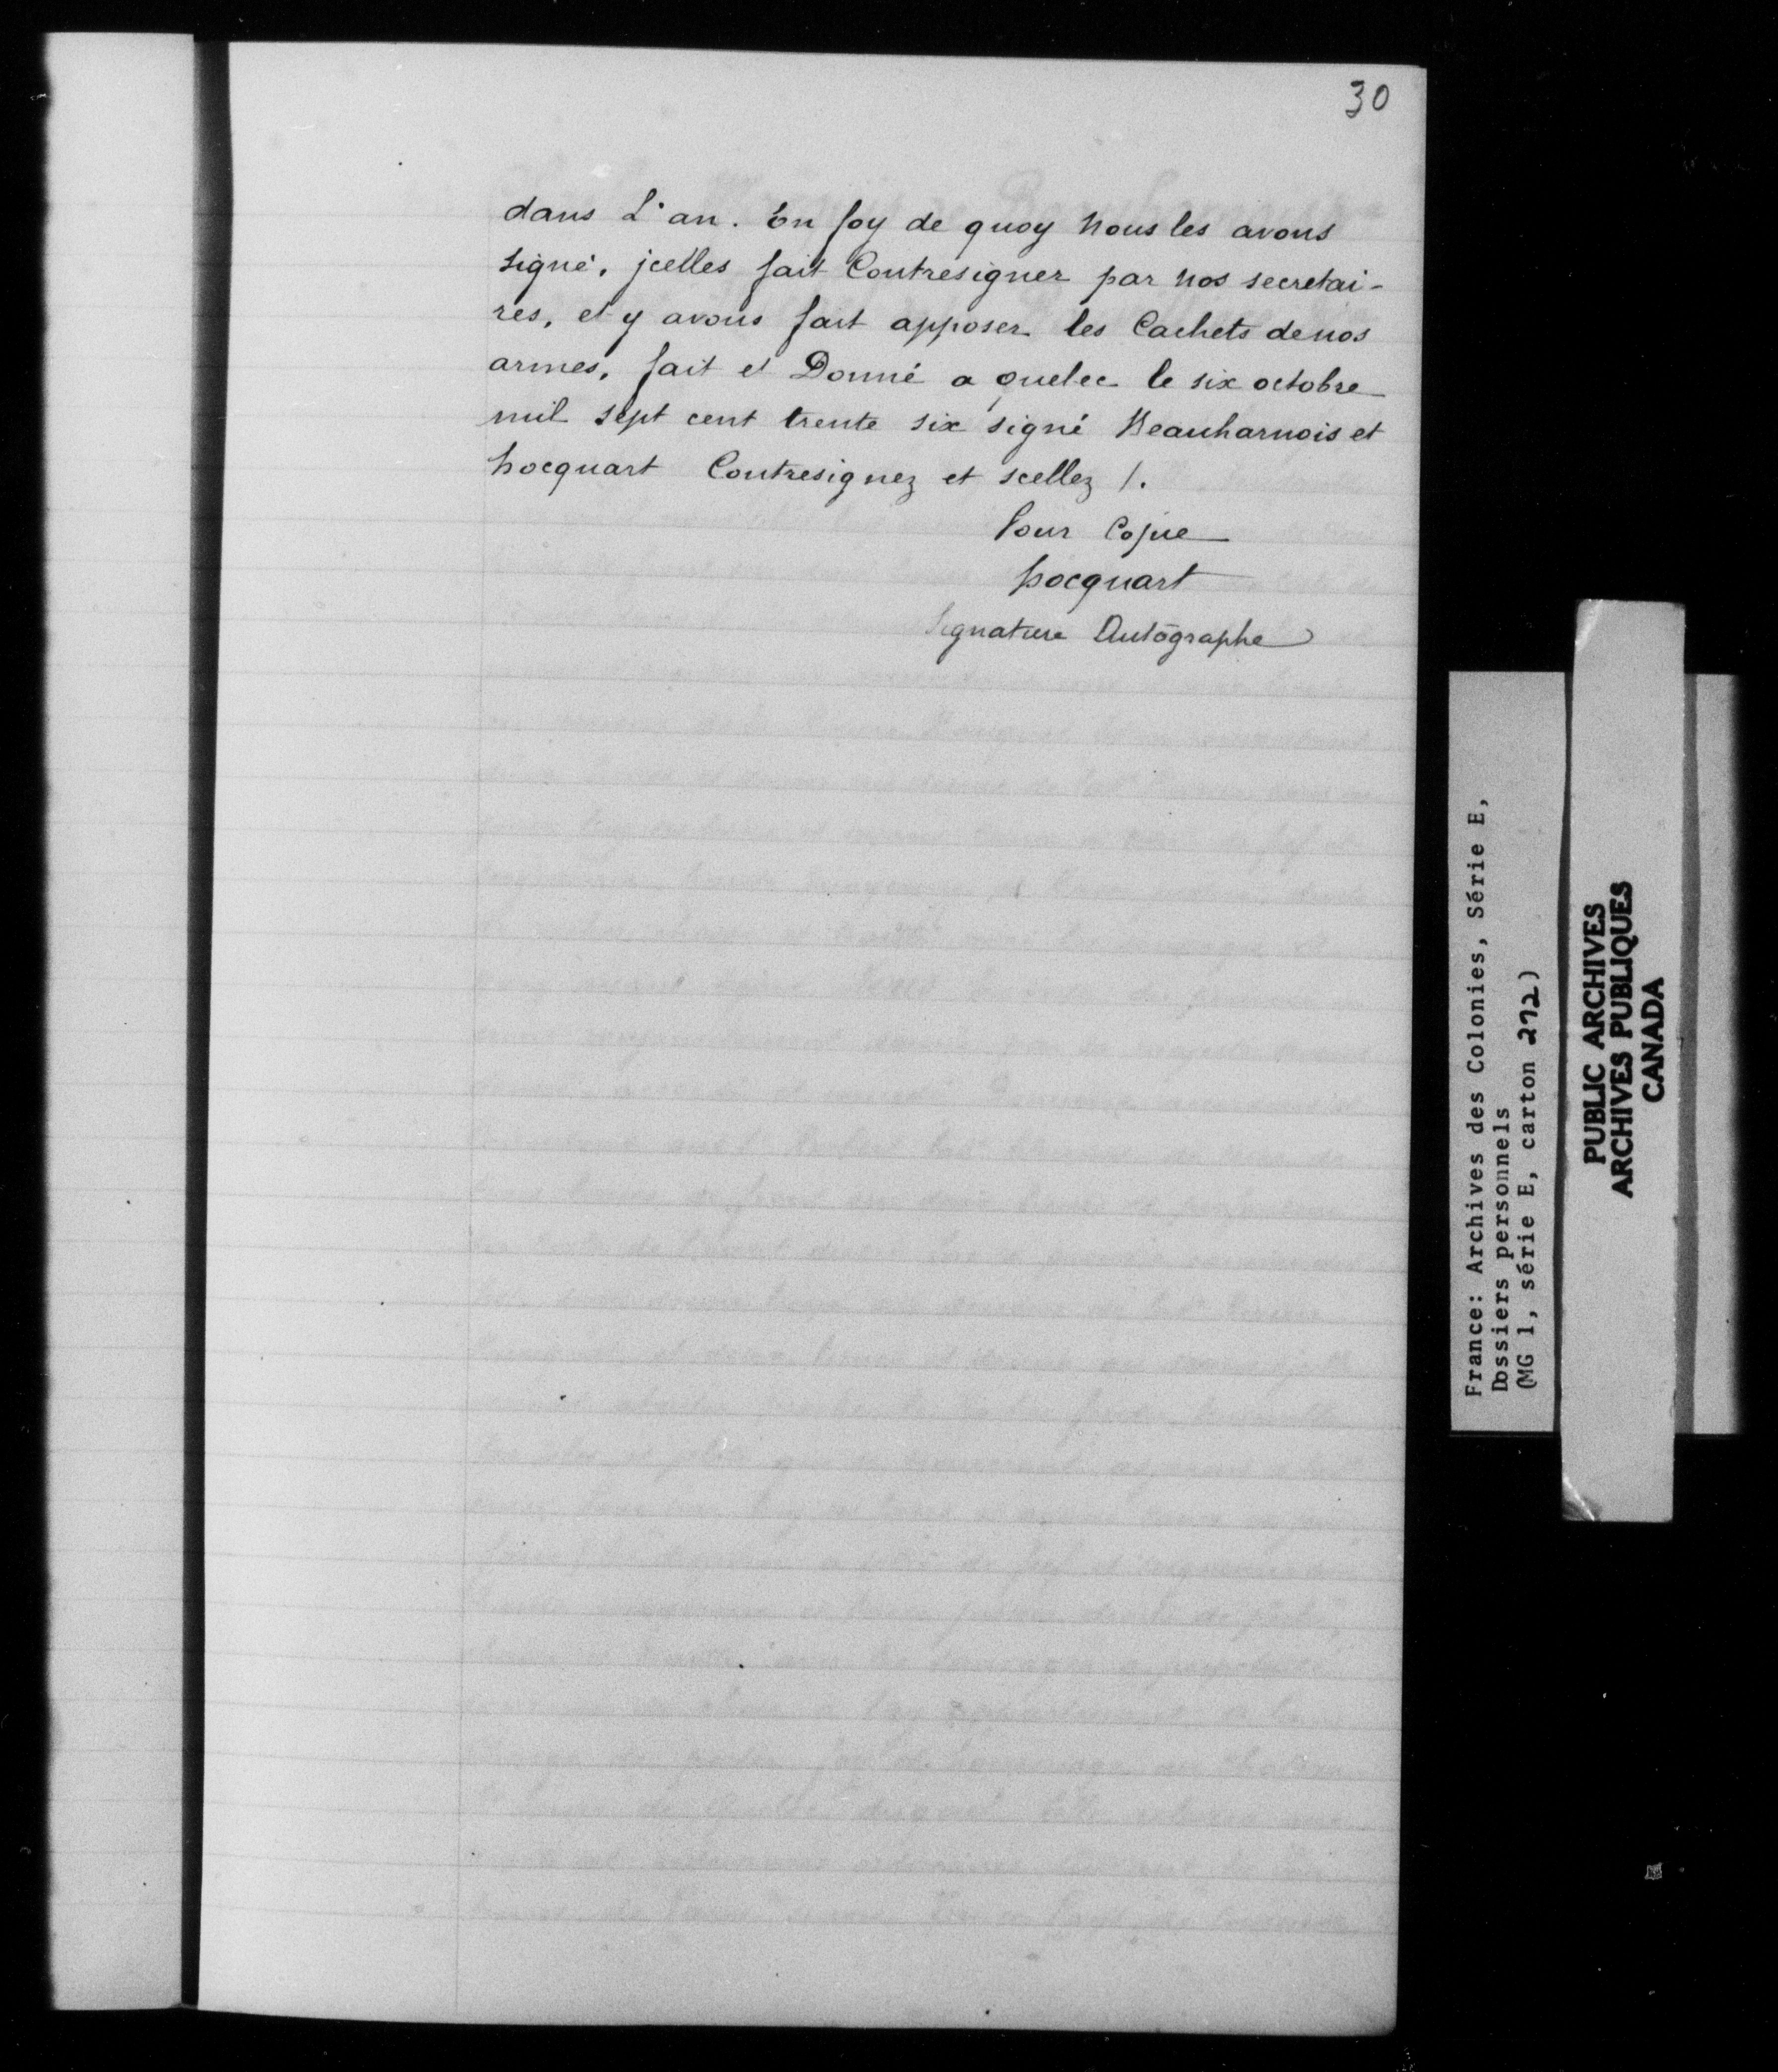 30
dans L'an. En foy de quoy Nous les avons
signé, jcelles fait Contresigner par nos secretai-
res, et y avons fait apposer les Cachets de nos
armes, fait et Donné a quebec le six octobre
mil sept cent trente six signé Beauharnois et
hocquart Contresignez et scellez /.
Pour Copie
hocquart
Signature Autographe
France: Archives des Colonies, Série E,
Dossiers personnels
(MG 1, série E, carton 272)
PUBLIC ARCHIVES
ARCHIVES PUBLIQUES
CANADA